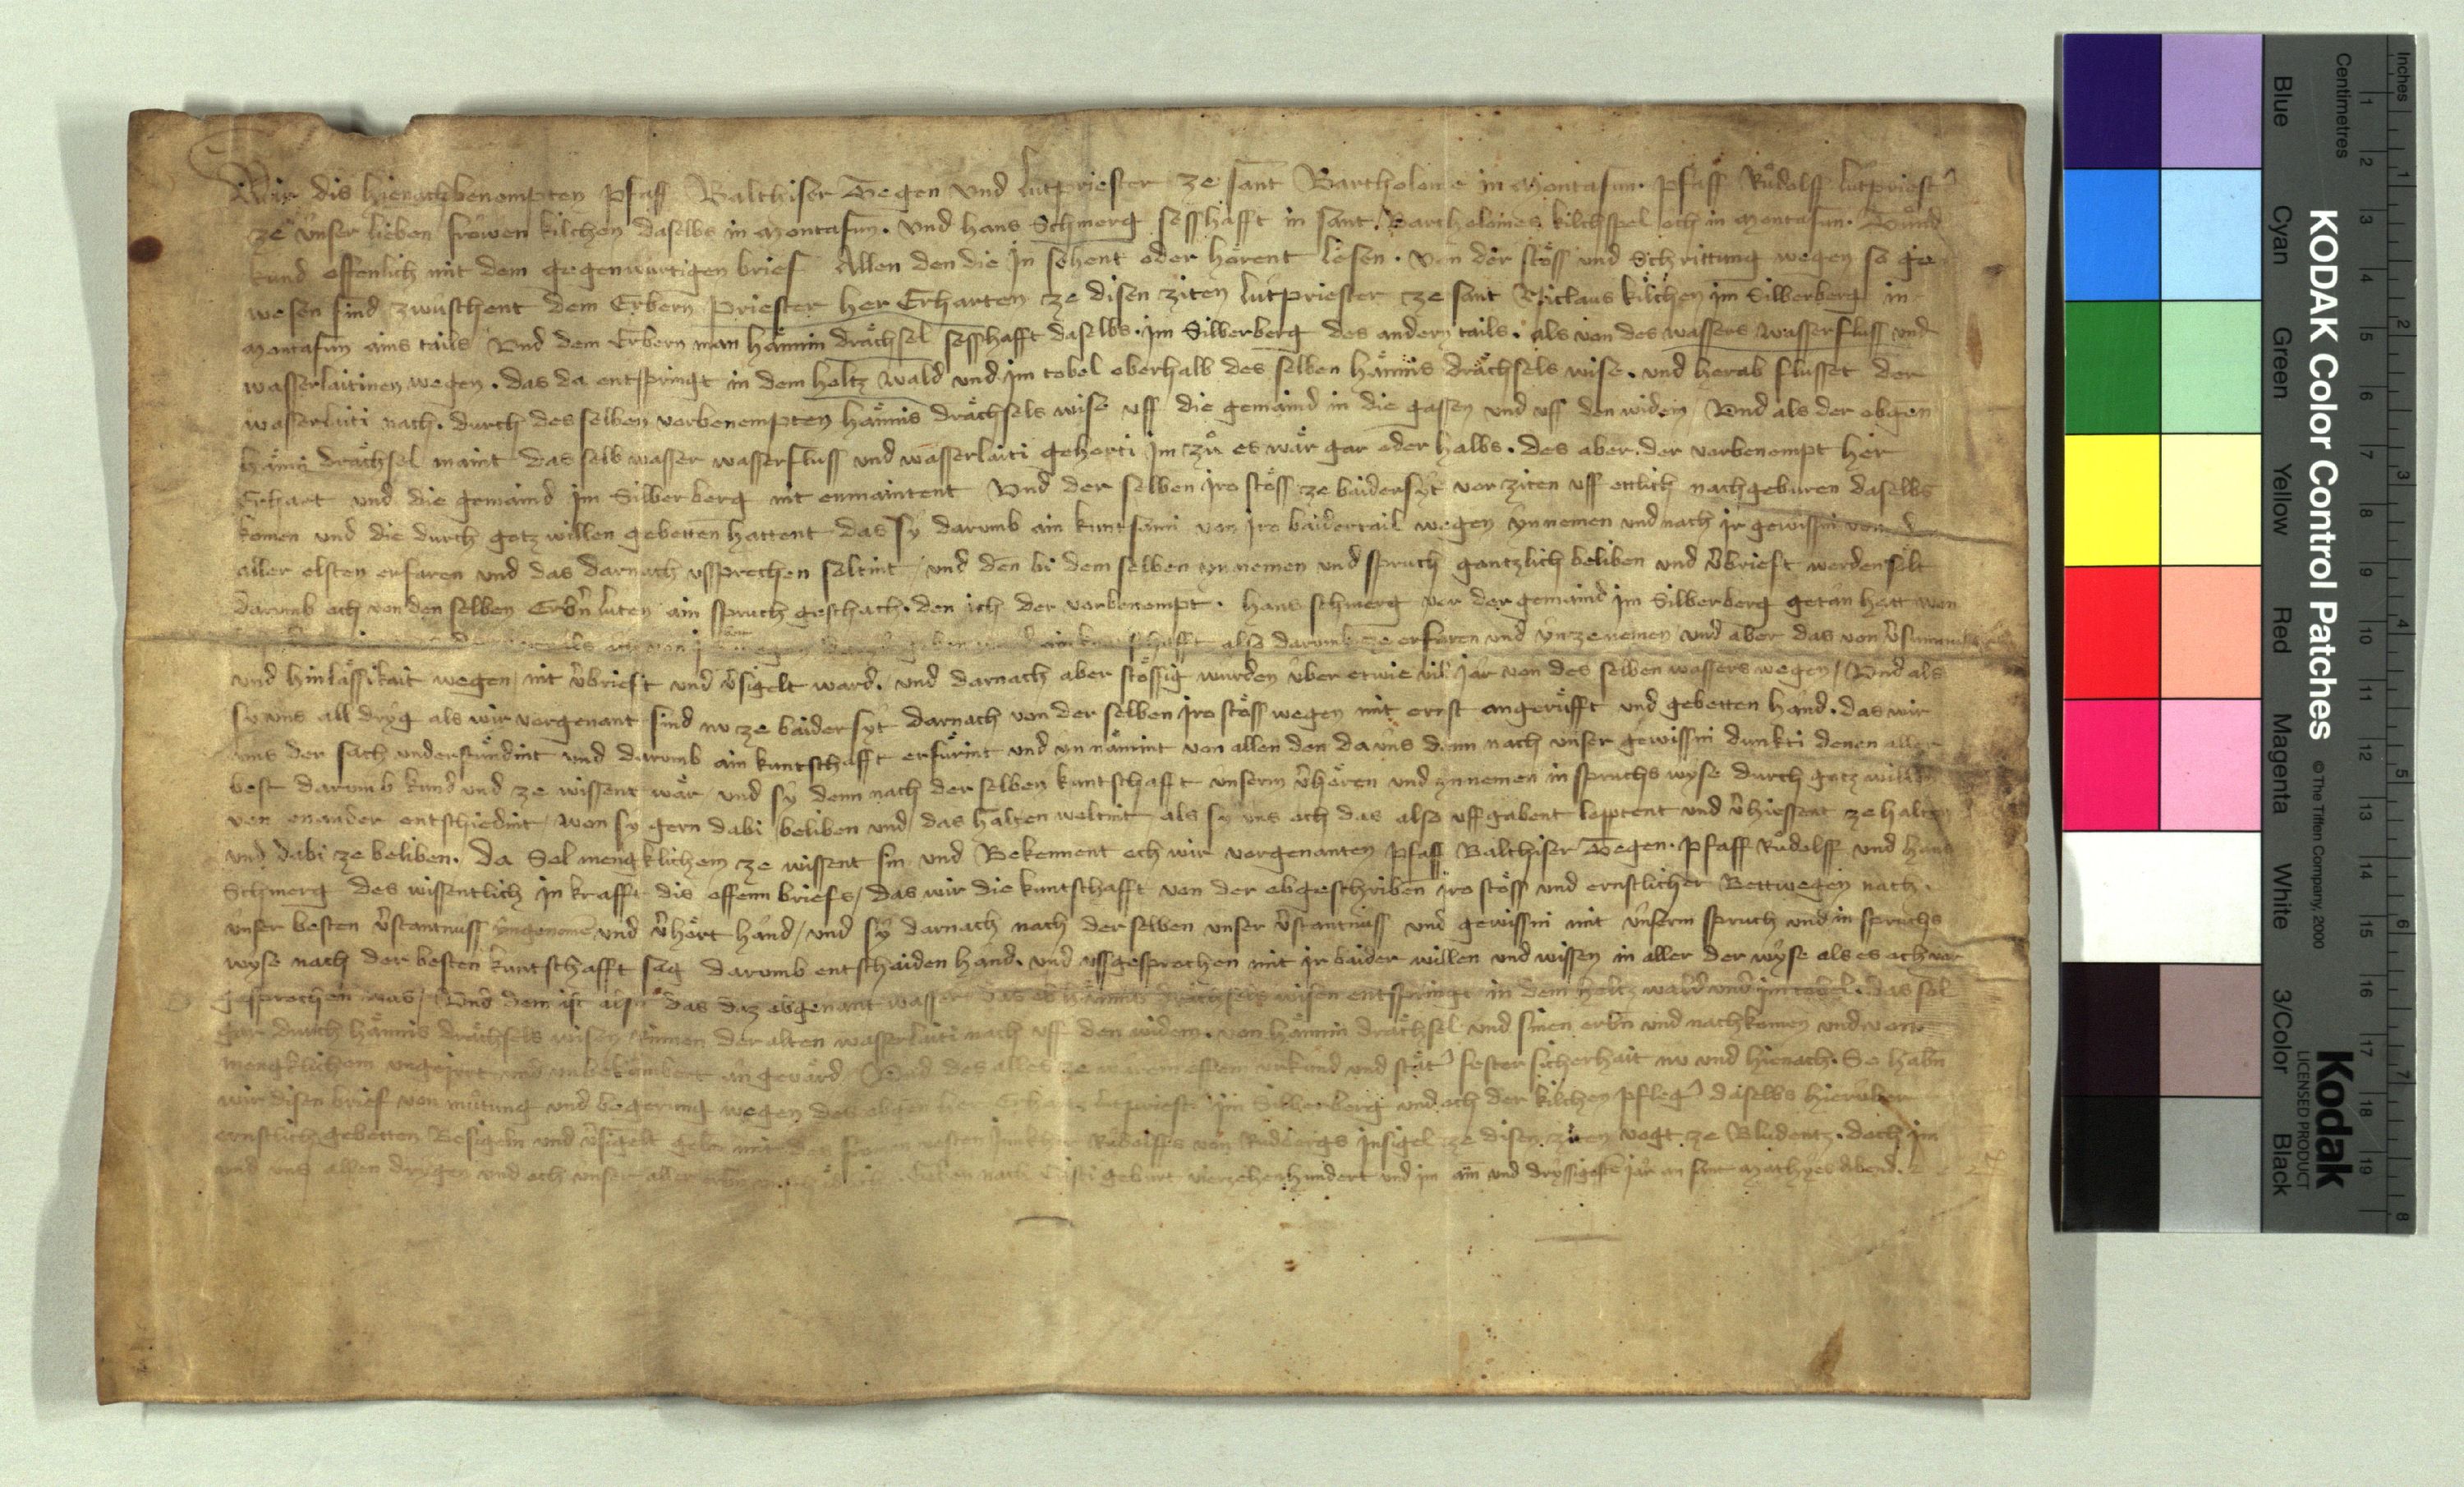 Wir dis hienachbenempten pfaff Balthiser Degen und lutpriester ze sant Bartholome in Montafun. pfaff Růdolff lútpriest
ze únser lieben frowen kilchen daselbs in Montafun. und hans Schmerg sesshafft in sant Bartholomes kilchspel och in Montafun.
kund offenlich mit dem gegenwúrtigen brief Allen den die in sehent oder hörent lesen. von der stöss und Schrittung wegen so ge
wesen sind zwúschent dem Erbern Priester her Erharten ze disen ziten lútpriester ze sant Niclaus kilchen im Silberberg in
Montafun ains tails Und dem Erbern man hännin drächsel sesshafft daselbs im Silberberg des andern tails. als von des wassers wasserfluss und
wasserlaitinen wegen. das da entspringt in dem holtz wald und im tobel oberhalb des selben hännis drächsels wise. und herab flusset der
wasserlaiti nach. durch des selben vorbenempten hännis drächsels wise uff die gemaind in die gassen und uff den widem Und als der obgen
hänni drächsel maint das selb wasser wasserfluss und wasserlaiti gehorti im zů es wär gar oder halbs. des aber der vorbenempt her
Erhart und die gemaind im Silberberg nit enmaintent Und der selben iro stöss ze baidersyt vor ziten uff ettlich nachgeburen daselbs
komen und die durch gotz willen gebetten hattent das sy darumb ain kuntsami von iro baidertail wegen ynnemen und nach ir gewissni von
aller elsten erfaren und das darnach ussprechen soltint und den bi dem selben ynnemen und spruch gantzlich beliben und vbrieft werden solt
darumb och von den selben Erbn lúten ain spruch geschach. den ich der vorbenempt hans schmerg vor der gemaind im Silberberg getan hett won
also darumb ze erfaren und ynzenemen und aber das von
und hinlässikait wegen nit vbrieft und vsigelt ward. und darnach aber stössig wurden úber etwie vil jar von des selben wassers wegen Und als
sy uns all dryg als wir vorgenant sind nu ze baidersyt darnach von der selben iro stöss wegen mit ernst angerüfft und gebetten hand. das wir
uns der sach understúndint und darumb ain kuntschafft erfürint und yn nämint von allen den da uns denn nach unser gewissni dunkti denen aller
best darumb kund und ze wissent wär und sy denn nach der selben kuntschafft únserm vhören und ynnemen in spruchs wyse durch gotz willen
von enander entschiedint won sy gern dabi beliben und das halten woltint als sy uns och das also uff gabent loptent und vhiessent ze halten
und dabi ze beliben. Da Sol mengklichem ze wissent sin und Bekennent och wir vorgenanten pfaff Balthiser Degen. pfaff Růdolff und hans
Schmerg des wissentlich in krafft dis offenn briefs das wir die kuntschafft von der obgeschriben iro stöss und ernstlicher Bett wegen nach
únser besten vstantnuss yngenomen und vhört hand und sy darnach nach der selben unser vstantnuss und gewissni mit únserm spruch und in spruchs
wyse nach der besten kuntschafft sag darumb entschaiden hand. und ussgesprochen mit ir baider willen und wissen in aller der wyse als es och vor
gesprochen was Und dem ist also das daz obgenant wasser das ob hännis drächsels wisen entspringt in dem holtz wald und im tobel. das sol
gar durch hännis drächsels wisen rinnen der alten wasserlaiti nach uff den widem. von hännin drächsel und sinen erbn und nachkomen und von
mengklichem ungeirrt und unbekümbert an gevärd Und des alles ze warem offem urkúnd und stät fester sicherhait nu und hienach. So habn
wir disen brief von mutung und begerung wegen des obgen her Erhartz lútpriest im Silberberg und och der kilchen pfleg daselbs hierúber
ernstlich gebetten Besigeln und vsigelt gebn mit des fromen vesten Junkher Růdolffs von Rudbergs insigel ze disen ziten vogt ze Bludentz. doch im
und uns allen drygen und och únser aller erbn Geben nach Cristi geburt vierzehenhundert und im ain und dryssigosten jar an sant Mathyes abend.
KODAK Color Control Patches © The Tiffen Company, 2000
Kodak
LICENSED PRODUCT
Inches 1 2 3 4 5 6 7 8
Centimetres 1 2 3 4 5 6 7 8 9 10 11 12 13 14 15 16 17 18 19
Blue Cyan Green Yellow Red Magenta White 3/Color Black